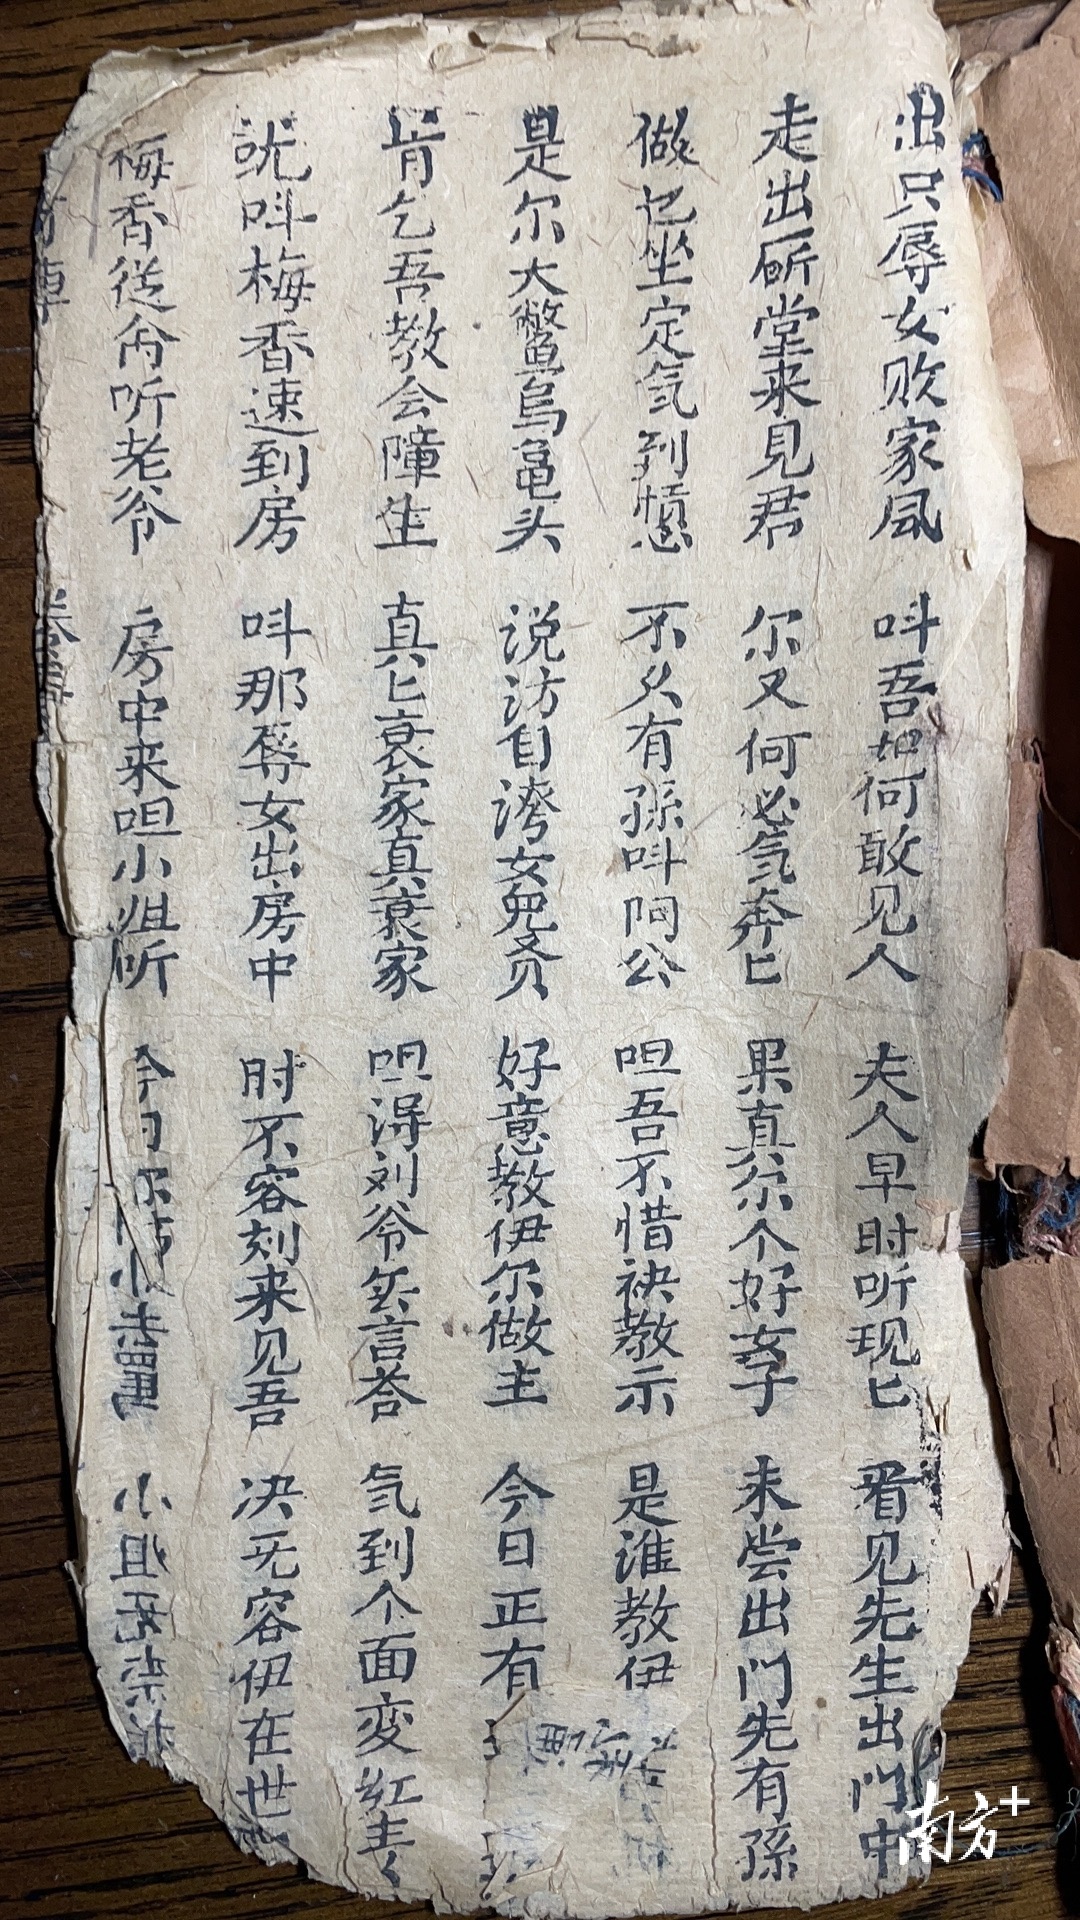 出只辱女败家风 呌吾如何敢见人 夫人早时听现匕 看见先生出门中
走出𠩄堂来見君 尔又何必气奔匕 果真尔个好女子 未尝出门先有孫
做乜坐定气到 不久有孫呌问公 呾吾不惜袂教示 是谁教伊
是尔大鳖烏龟头 说访自誇女皃贤 好意教伊尔做主 今日正有
肯乞吾教会障生 真匕衰家真衰家 呾得刘爷实言荅 气到个面变红青
説呌梅香速到房 呌那辱女出房中 时不容刻来见吾 决无容伊在世
梅香从命听老爷 房中来呾小姐听 今日 小姐
南方+